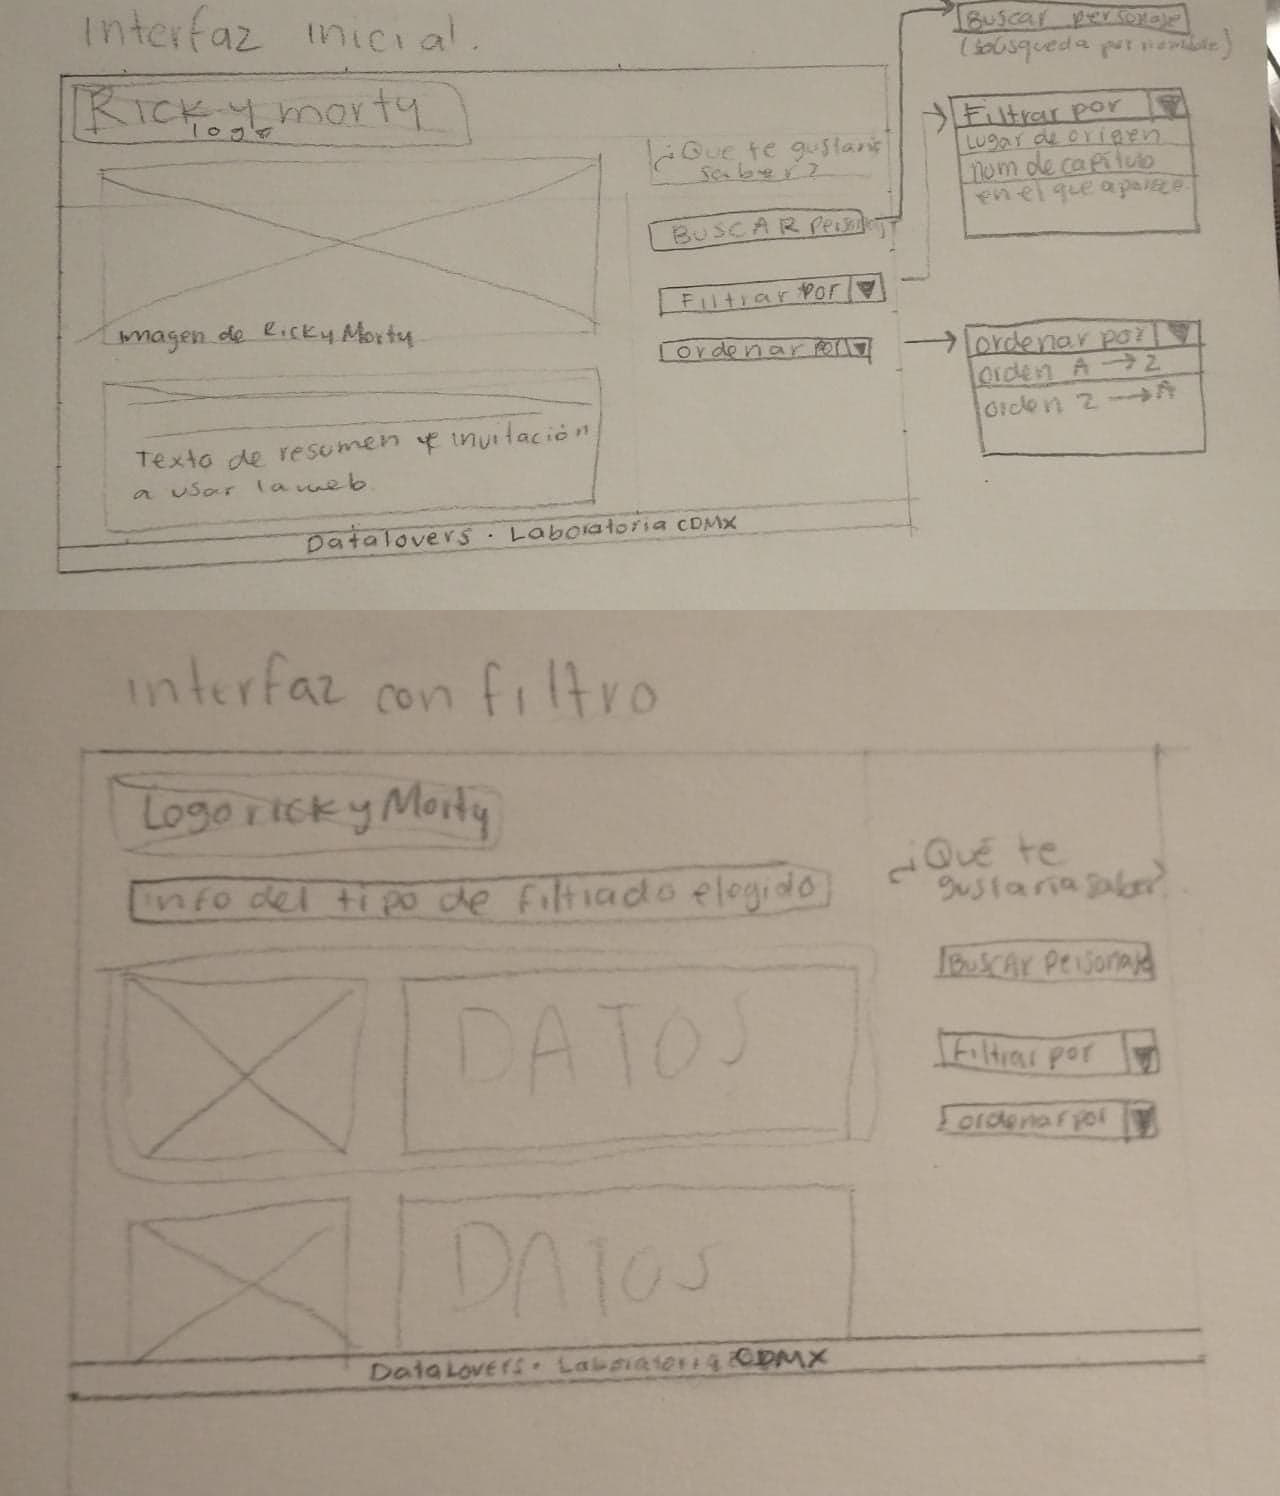 Interfaz inicial.
Rick y morty
logo
Imagen de Rick y Morty
Texto de resumen e invitación
a usar la web.
¿Que te gustaria
saber?
BUSCAR Personaj
Filtrar por
ordenar por
Datalovers · Laboratoria CDMX
Buscar personaje
(búsqueda por nombre)
Filtrar por
Lugar de origen
num de capítulo
en el que aparece.
ordenar por
orden A → Z
orden Z → A
interfaz con filtro
Logo rick y Morty
info del tipo de filtrado elegido
DATOS
DATOS
¿Qué te
gustaria saber?
BUSCAr Personaje
Filtrar por
ordenar por
DataLovers · Laboratoria CDMX